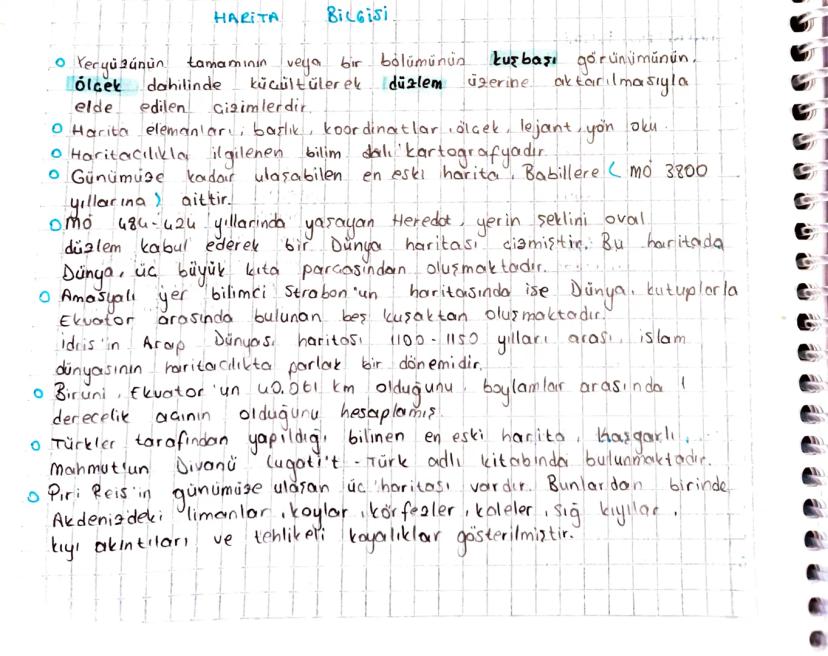 HARİTA BİLGİSİ
Yeryüzünün tamamının veya bir bölümünün kuşbaşı görünümünün,
ölçek dahilinde küçültülerek düzlem üzerine aktarılmasıyla
elde edilen çizimlerdir.
Harita elemanları; başlık, koordinatlar, ölçek, lejant, yön oku.
Haritacılıkla ilgilenen bilim dalı kartografyadır.
Günümüze kadar ulaşabilen en eski harita, Babillere (MÖ 3800
yıllarına) aittir.
MÖ 484-424 yıllarında yaşayan Heredot, yerin şeklini oval
düzlem kabul ederek bir Dünya haritası çizmiştir. Bu haritada
Dünya, üç büyük kıta parçasından oluşmaktadır.
Amasyalı yer bilimci Strabon'un haritasında ise Dünya, kutuplarla
Ekvator arasında bulunan beş kuşaktan oluşmaktadır.
İdris'in Arap Dünyası haritası 1100-1150 yılları arası, islam
dünyasının haritacılıkta parlak bir dönemidir.
Biruni, Ekvator'un 40.061 km olduğunu, boylamlar arasında 1
derecelik açının olduğunu hesaplamış.
Türkler tarafından yapıldığı bilinen en eski harita, Kaşgarlı
Mahmut'un Divanü Lugati't-Türk adlı kitabında bulunmaktadır.
Piri Reis'in günümüze ulaşan üç haritası vardır. Bunlardan birinde
Akdenizdeki limanlar, koylar, körfezler, kaleler, sığ kıyılar,
kıyı akıntıları ve tehlikeli kayalıklar gösterilmiştir.